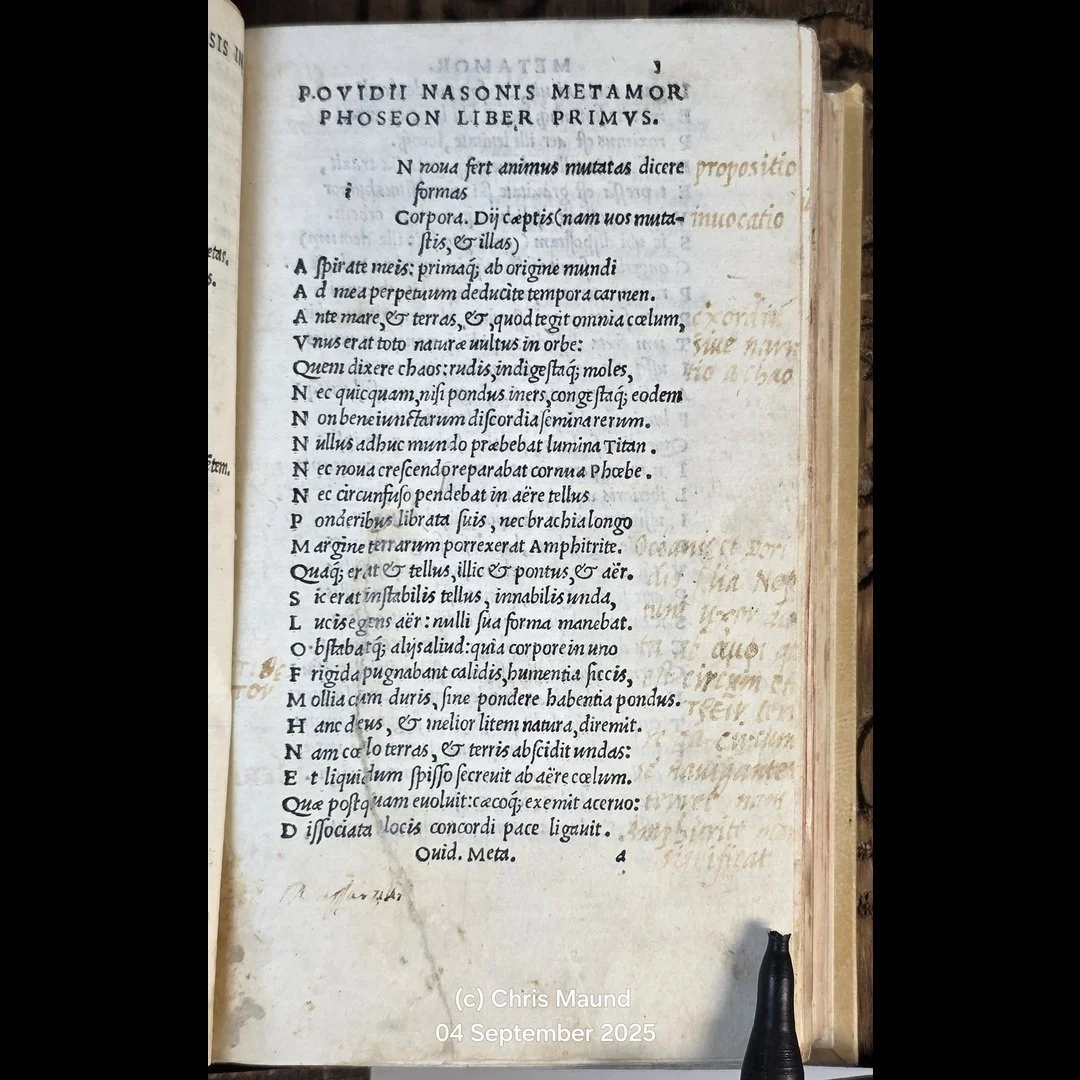 SIS IN
3
P.OVIDII NASONIS METAMOR
PHOSEON LIBER PRIMVS.
N noua fert animus mutatas dicere
propositio
i
formas
Corpora. Dij cœptis (nam uos muta-
inuocatio
stis, & illas)
A spirate meis: primaq; ab origine mundi
A d mea perpetuum deducite tempora carmen.
A nte mare, & terras, &, quod tegit omnia cœlum,
V nus erat toto naturæ uultus in orbe:
siue narr
Quem dixere chaos: rudis, indigestaq; moles,
tio a chao
N ec quicquam, nisi pondus iners, congestaq; eodem
N on bene iunctarum discordia semina rerum.
N ullus adhuc mundo præbebat lumina Titan.
N ec noua crescendo reparabat cornua Phœbe.
N ec circunfuso pendebat in aëre tellus
P onderibus librata suis, nec brachia longo
M argine terrarum porrexerat Amphitrite.
Quaq; erat & tellus, illic & pontus, & aër.
S ic erat instabilis tellus, innabilis unda,
L ucis egens aër: nulli sua forma manebat.
O bstabatq; alijs aliud: quia corpore in uno
F rigida pugnabant calidis, humentia siccis,
M ollia cum duris, sine pondere habentia pondus.
H anc deus, & melior litem natura, diremit.
N am cœlo terras, & terris abscidit undas:
E t liquidum spisso secreuit ab aëre cœlum.
Quæ postquam euoluit: cæcoq; exemit aceruo:
D issociata locis concordi pace ligauit.
Ouid. Meta.
a
significat
etas.
s.
(c) Chris Maund
04 September 2025